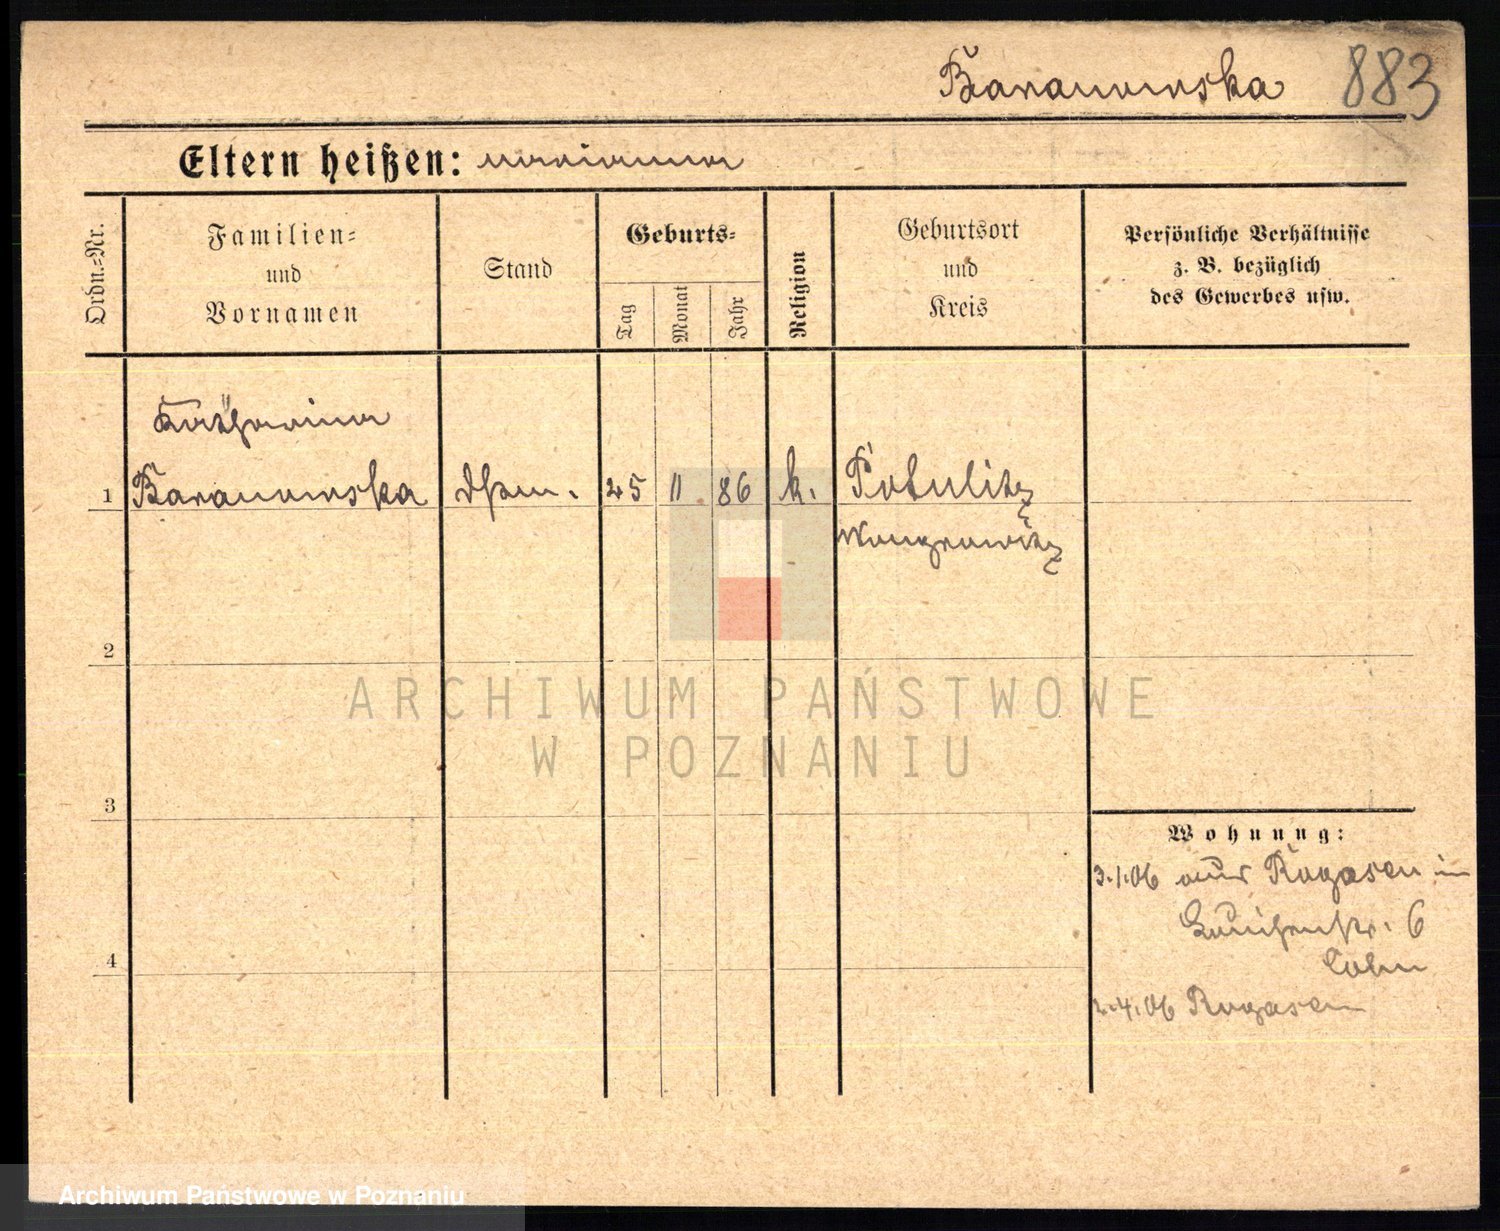 Baranowska 883
Eltern heißen: Marianna
Ordn.-Nr.
Familien-
und
Vornamen
Stand
Geburts-
Tag
Monat
Jahr
Religion
Geburtsort
und
Kreis
Persönliche Verhältnisse
z. B. bezüglich
des Gewerbes usw.
Katharina
1 Baranowska 25 11 86 k. Potulitz
Wongrowitz
2
ARCHIWUM PAŃSTWOWE
W POZNANIU
3
Wohnung:
3.1.06 aus Rogasen in
6
Cohn
4
2.4.06 Rogasen
Archiwum Państwowe w Poznaniu